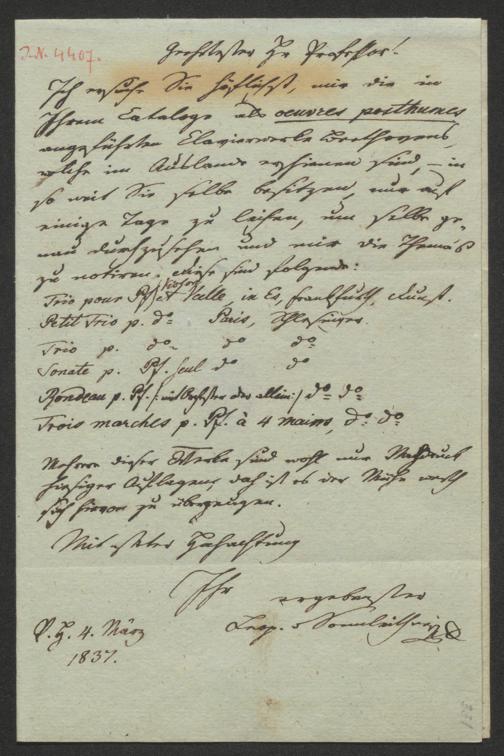 J.N. 4407.
Geehrtester Hr Professor!
Ich ersuche Sie höflichst, mir die in
Ihrem Cataloge als oeuvres posthumes
angeführten Clavierwerke Beethovens,
welche im Auslande erschienen sind, – in
so weit Sie selbe besitzen, nur auf
einige Tage zu leihen, um selbe ge-
nau durchzusehen und mir die Themas
zu notiren. Diese sind folgende:
Trio pour Pf, et Vcelle, in Es, Frankfurth, Dunst.
Petit Trio p. do Paris, Schlesinger.
Trio p. do do do
Sonate p. Pf. seul do do
Rondeau p. Pf. do do
Trois marches p. Pf. à 4 mains, do do
Mehrere dieser Werke sind wohl nur Nachdruck
hiesiger Auflagen, doch ist es der Mühe werth
sich hievon zu überzeugen.
Mit Hochachtung
Ihr ergebenster
Leop. v Sonnleithner
4. März
1837.